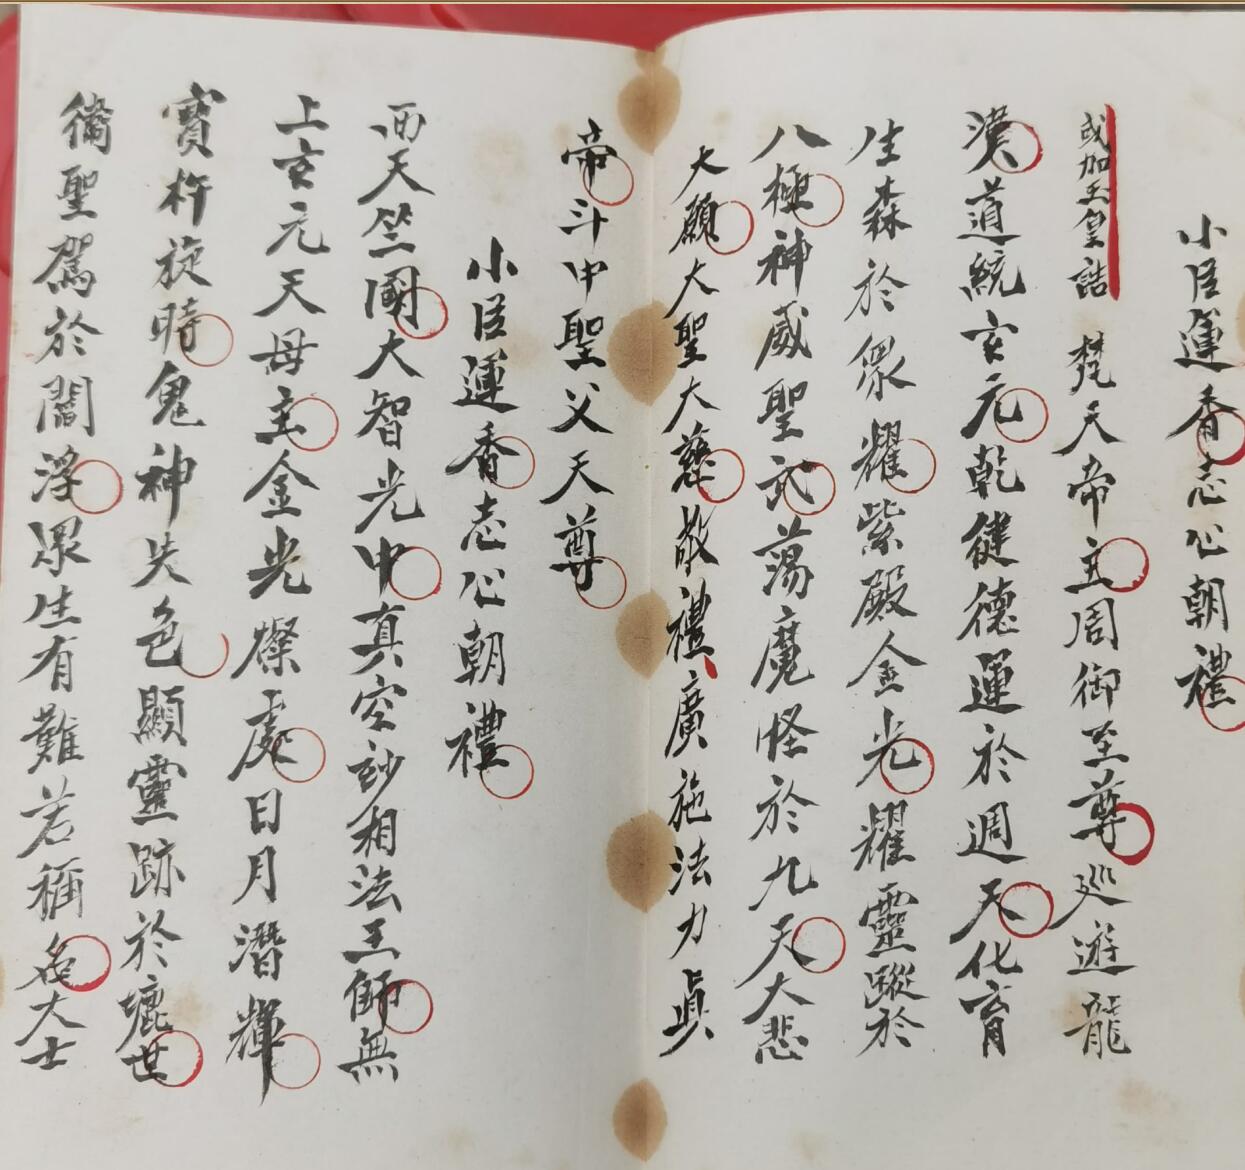 小臣運香志心朝禮
或加玉皇誥 梵天帝主周御至尊巡遊龍
漢道統玄元乾健德運於週天化育
生森於眾耀紫殿金光耀靈蹤於
八極神威聖武蕩魔怪於九天大悲
大願大聖大慈敬禮廣施法力真
帝斗中聖父天尊
小臣運香志心朝禮
西天竺國大智光中真空玅相法王師無
上玄元天母主金光爍處日月潛輝
寶杵旋時鬼神失色顯靈跡於塵世
衛聖駕於閻浮眾生有難若稱名大士